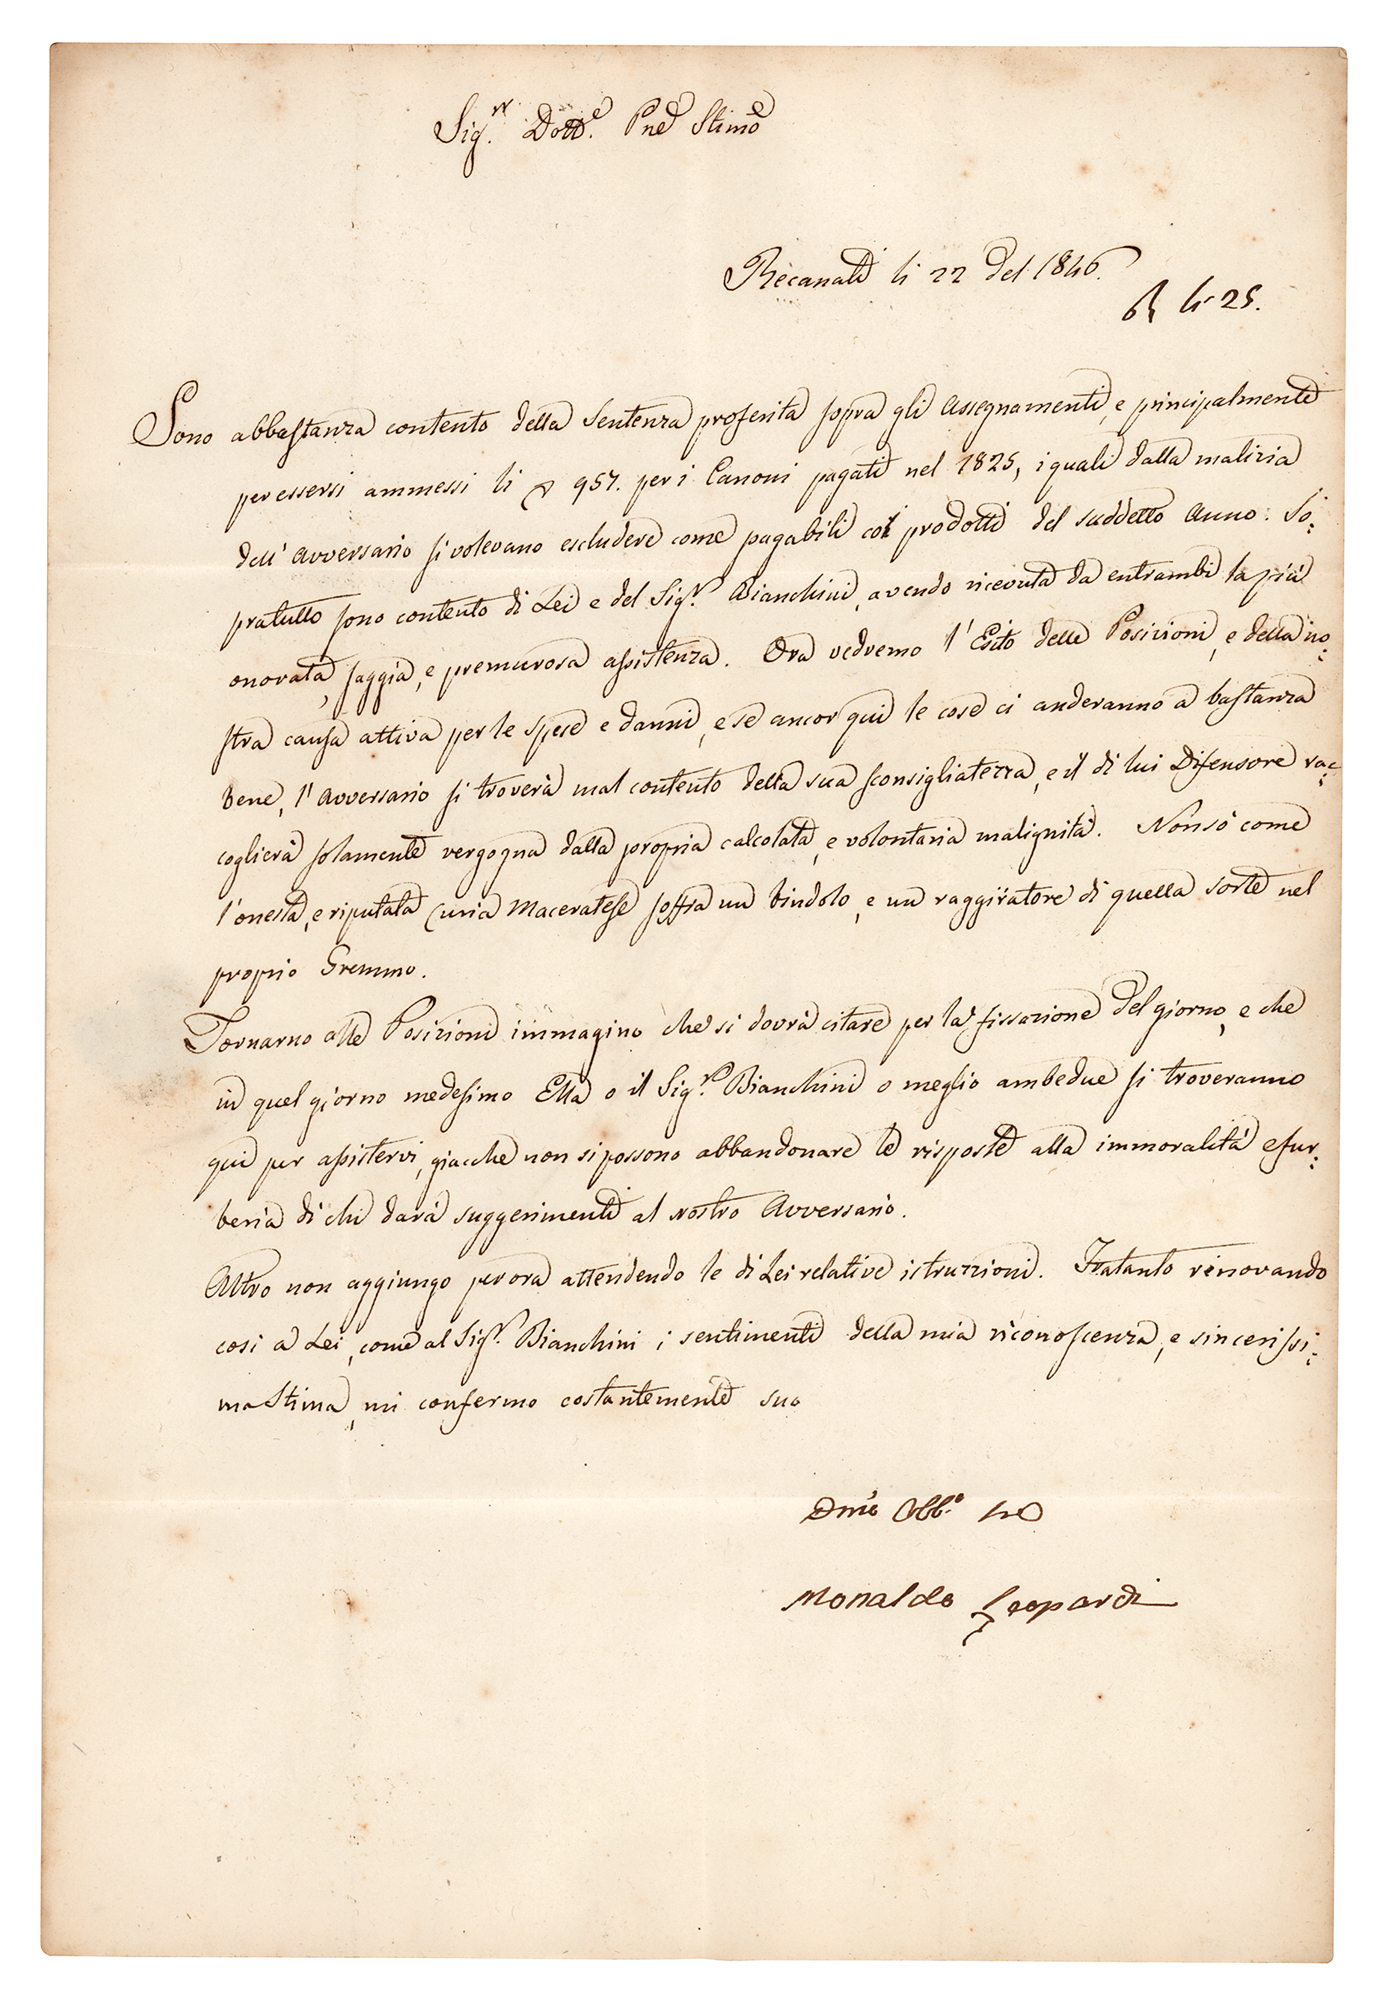 Sig.r Dott.e Pne Stimo
Recanati li 22 del 1846.
R li 25.
Sono abbastanza contento della Sentenza proferita sopra gli Assegnamenti, e principalmente
per essersi ammessi li 957. per i Canoni pagati nel 1825, i quali dalla malizia
dell' Avversario si volevano escludere come pagabili coi prodotti del suddetto Anno. So:
pratutto sono contento di Lei e del Sig.r Bianchini, avendo ricevuta da entrambi la più
onorata, saggia, e premurosa assistenza. Ora vedremo l'Esito delle Posizioni, e della no:
stra causa attiva per le spese e danni, e se ancor qui le cose ci anderanno a bastanza
bene, l'Avversario si troverà mal contento della sua sconsigliatezza, e il di lui Difensore rac:
coglierà solamente vergogna dalla propria calcolata, e volontaria malignità. Non sò come
l'onesta, e riputata Curia Maceratese soffra un bindolo, e un raggiratore di quella sorte nel
proprio Gremmo.
Tornarno alle Posizioni immagino che si dovrà citare per la fissazione del giorno, e che
in quel giorno medesimo Ella o il Sig.r Bianchini o meglio ambedue si troveranno
qui per assistervi, giacche non si possono abbandonare le risposte alla immoralità e fur:
beria di chi darà suggerimenti al nostro Avversario.
Altro non aggiungo per ora attendendo le di Lei relative istruzzioni. Fratanto rinovando
cosi a Lei, come al Sig.r Bianchini i sentimenti della mia riconoscenza, e sincerissi:
ma Stima, mi confermo costantemente suo
Dmo Obb.o
Monaldo Leopardi